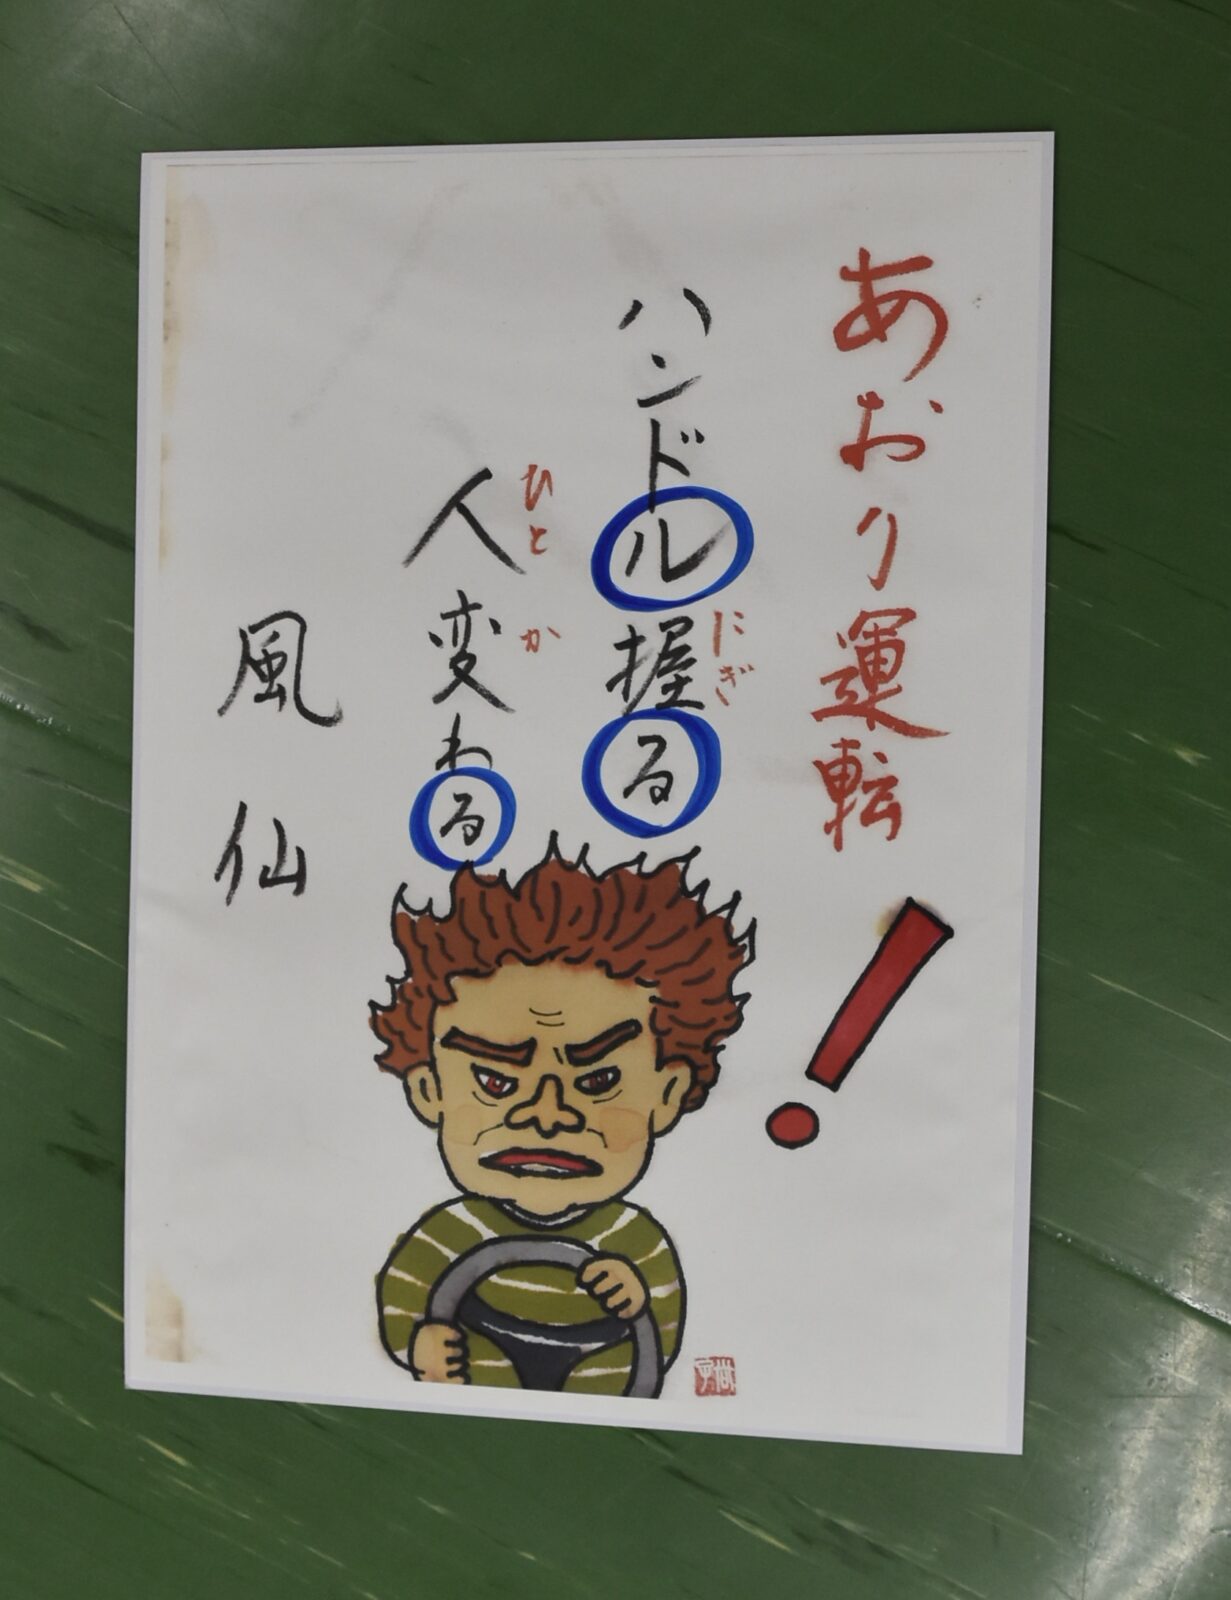 あおり運転
ハンドル握る
にぎ
人変わる
ひとか
風仙